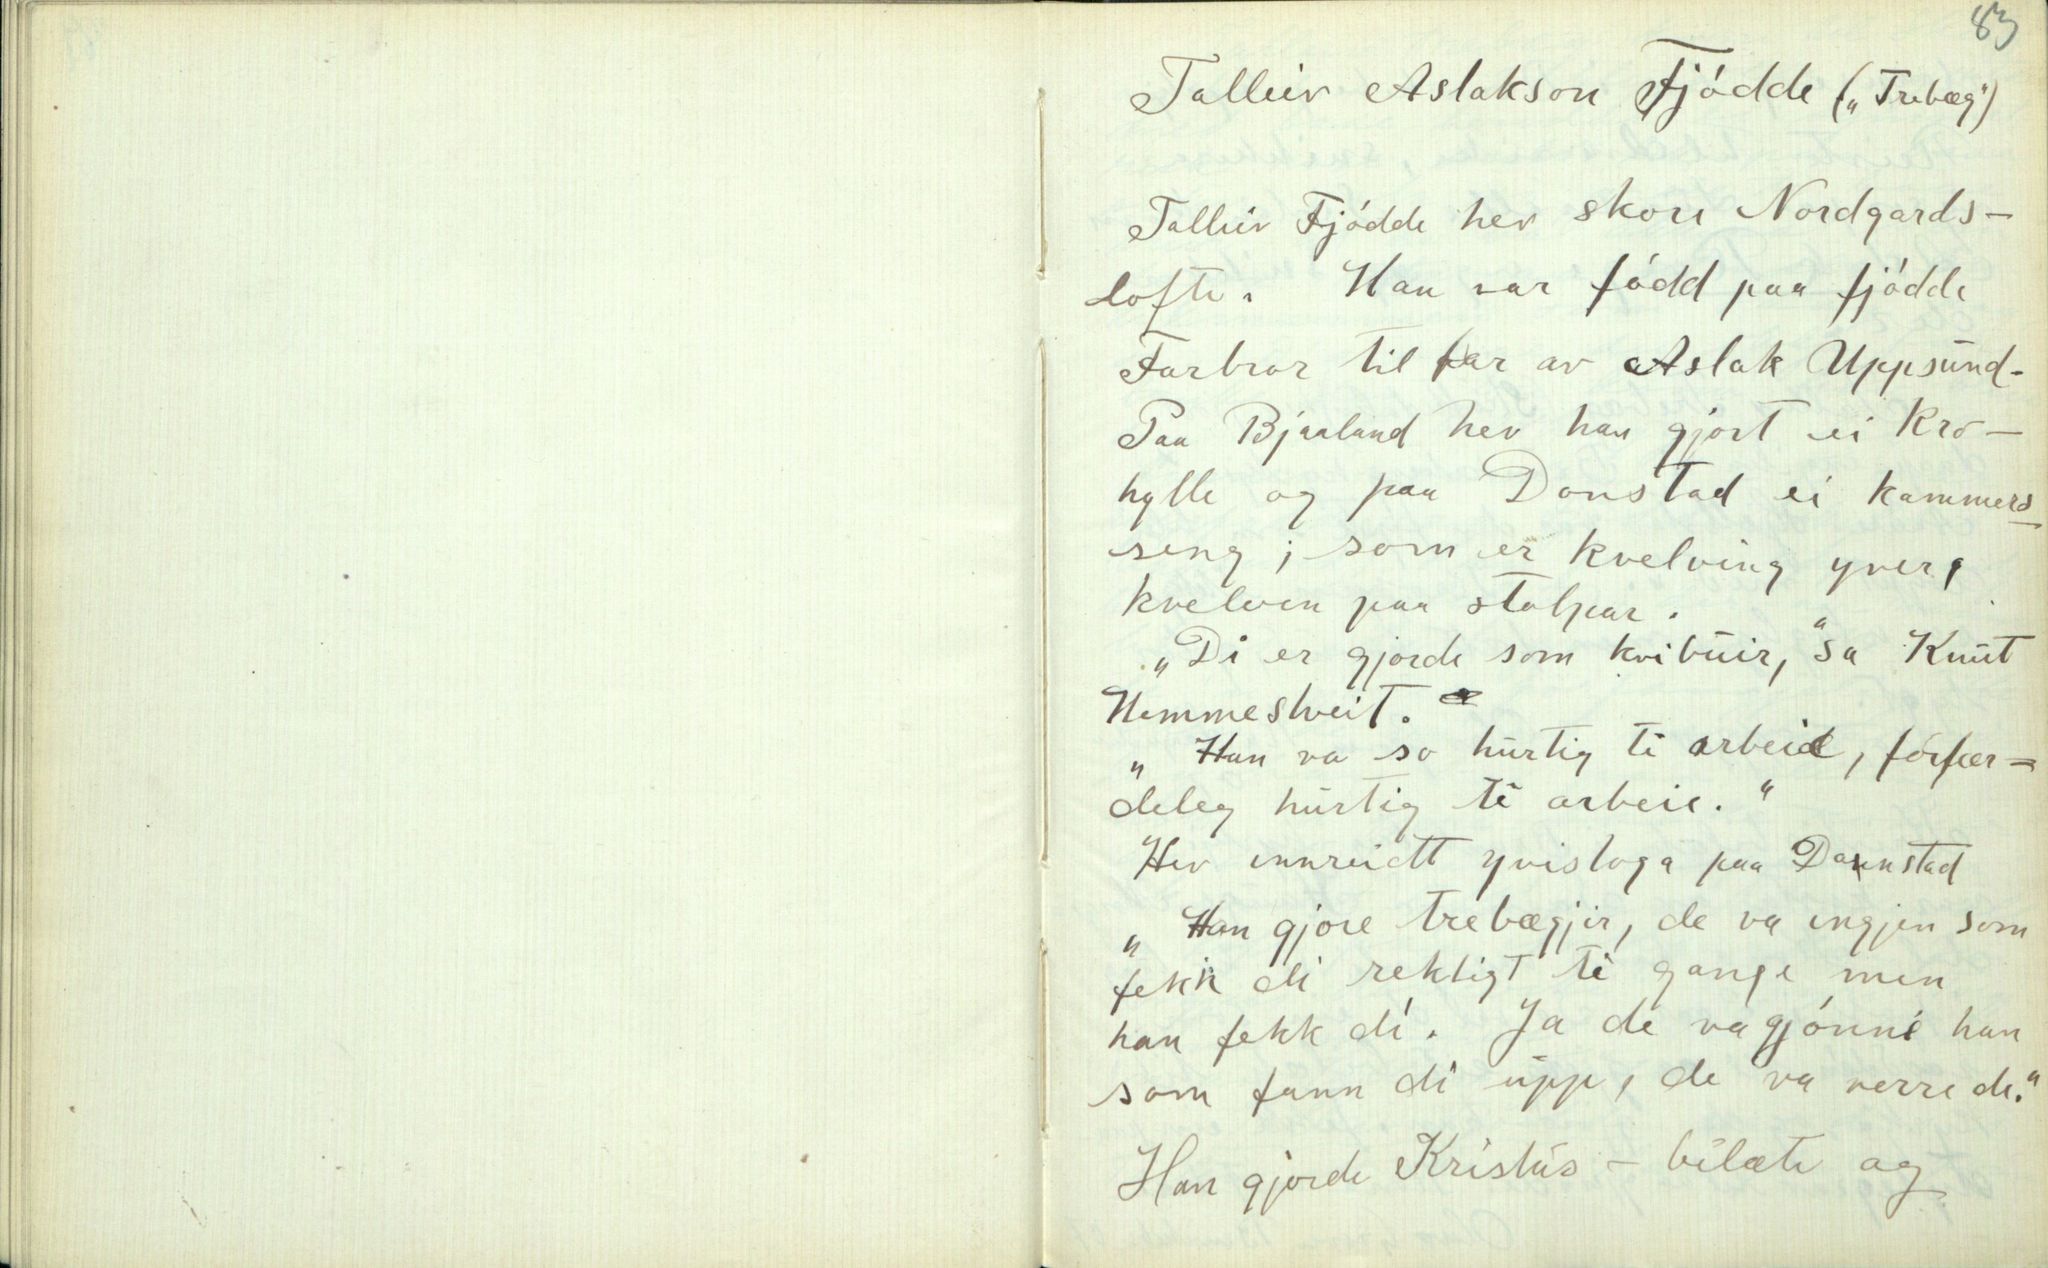 83
Talleiv Aslakson Fjódde („Trebæg")
Talleiv Fjódde hev skore Nordgards-
lofte. Han var född paa fjódde
Farbror til far av Aslak Uppsund-
Paa Bjaaland hev han gjort ei Kro-
hylle og paa Donstad ei kammers-
seng; som er kvelving yver,
kvelven paa stolpar.
„Di er gjorde som kvibúir," sa Knut
Hemmestveit.
„Han va so hurtig ti arbeie, fórfær-
deleg hurtig ti arbeie."
Hev innreidt yvistoga paa Donnstad
„Han gjore trebægjir, de va ingjen som
fekk di rektigt ti gange men
han fekk di. Ja de va gjónni han
som fann di upp, de va verre de."
Han gjorde Kristus-bilæte og